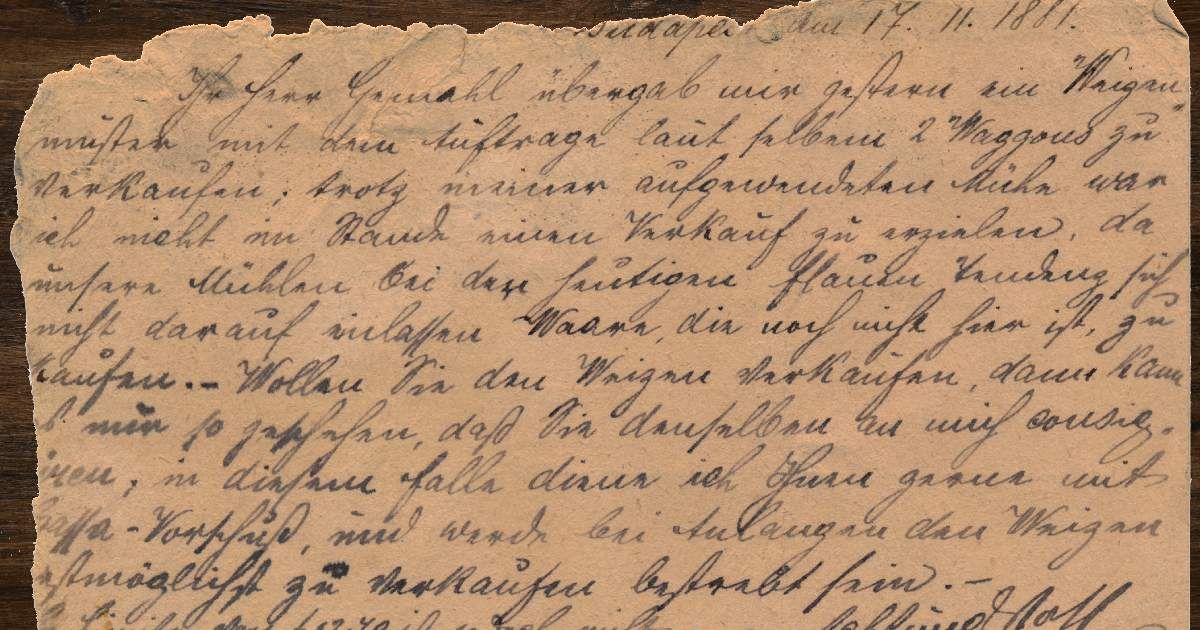 Budapest am 17. 11. 1881.
Ihr Herr Gemahl übergab mir gestern ein Weizen-
muster mit dem Auftrage laut selbem 2 Waggons zu
verkaufen; trotz meiner aufgewendeten Mühe war
ich nicht im Stande einen Verkauf zu erzielen, da
unsere Mühlen bei der heutigen flauen Tendenz sich
nicht darauf einlassen Waare, die noch nicht hier ist, zu
kaufen.- Wollen Sie den Weizen verkaufen, dann kann
es nur so geschehen, daß Sie denselben an mich consig-
iren; in diesem Falle diene ich Ihnen gerne mit
Cassa-Vorschuß, und werde bei Anlangen den Weizen
bestmöglichst zu verkaufen bestrebt sein.-
Achtungsvoll